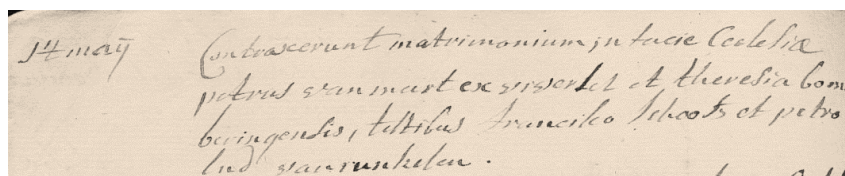 14 maÿ Contraxerunt matrimonium in facie Ecclesiæ
petrus van mart ex et theresia bom
beringensis, testibus francisco schoots et petro
lud van runkelen.